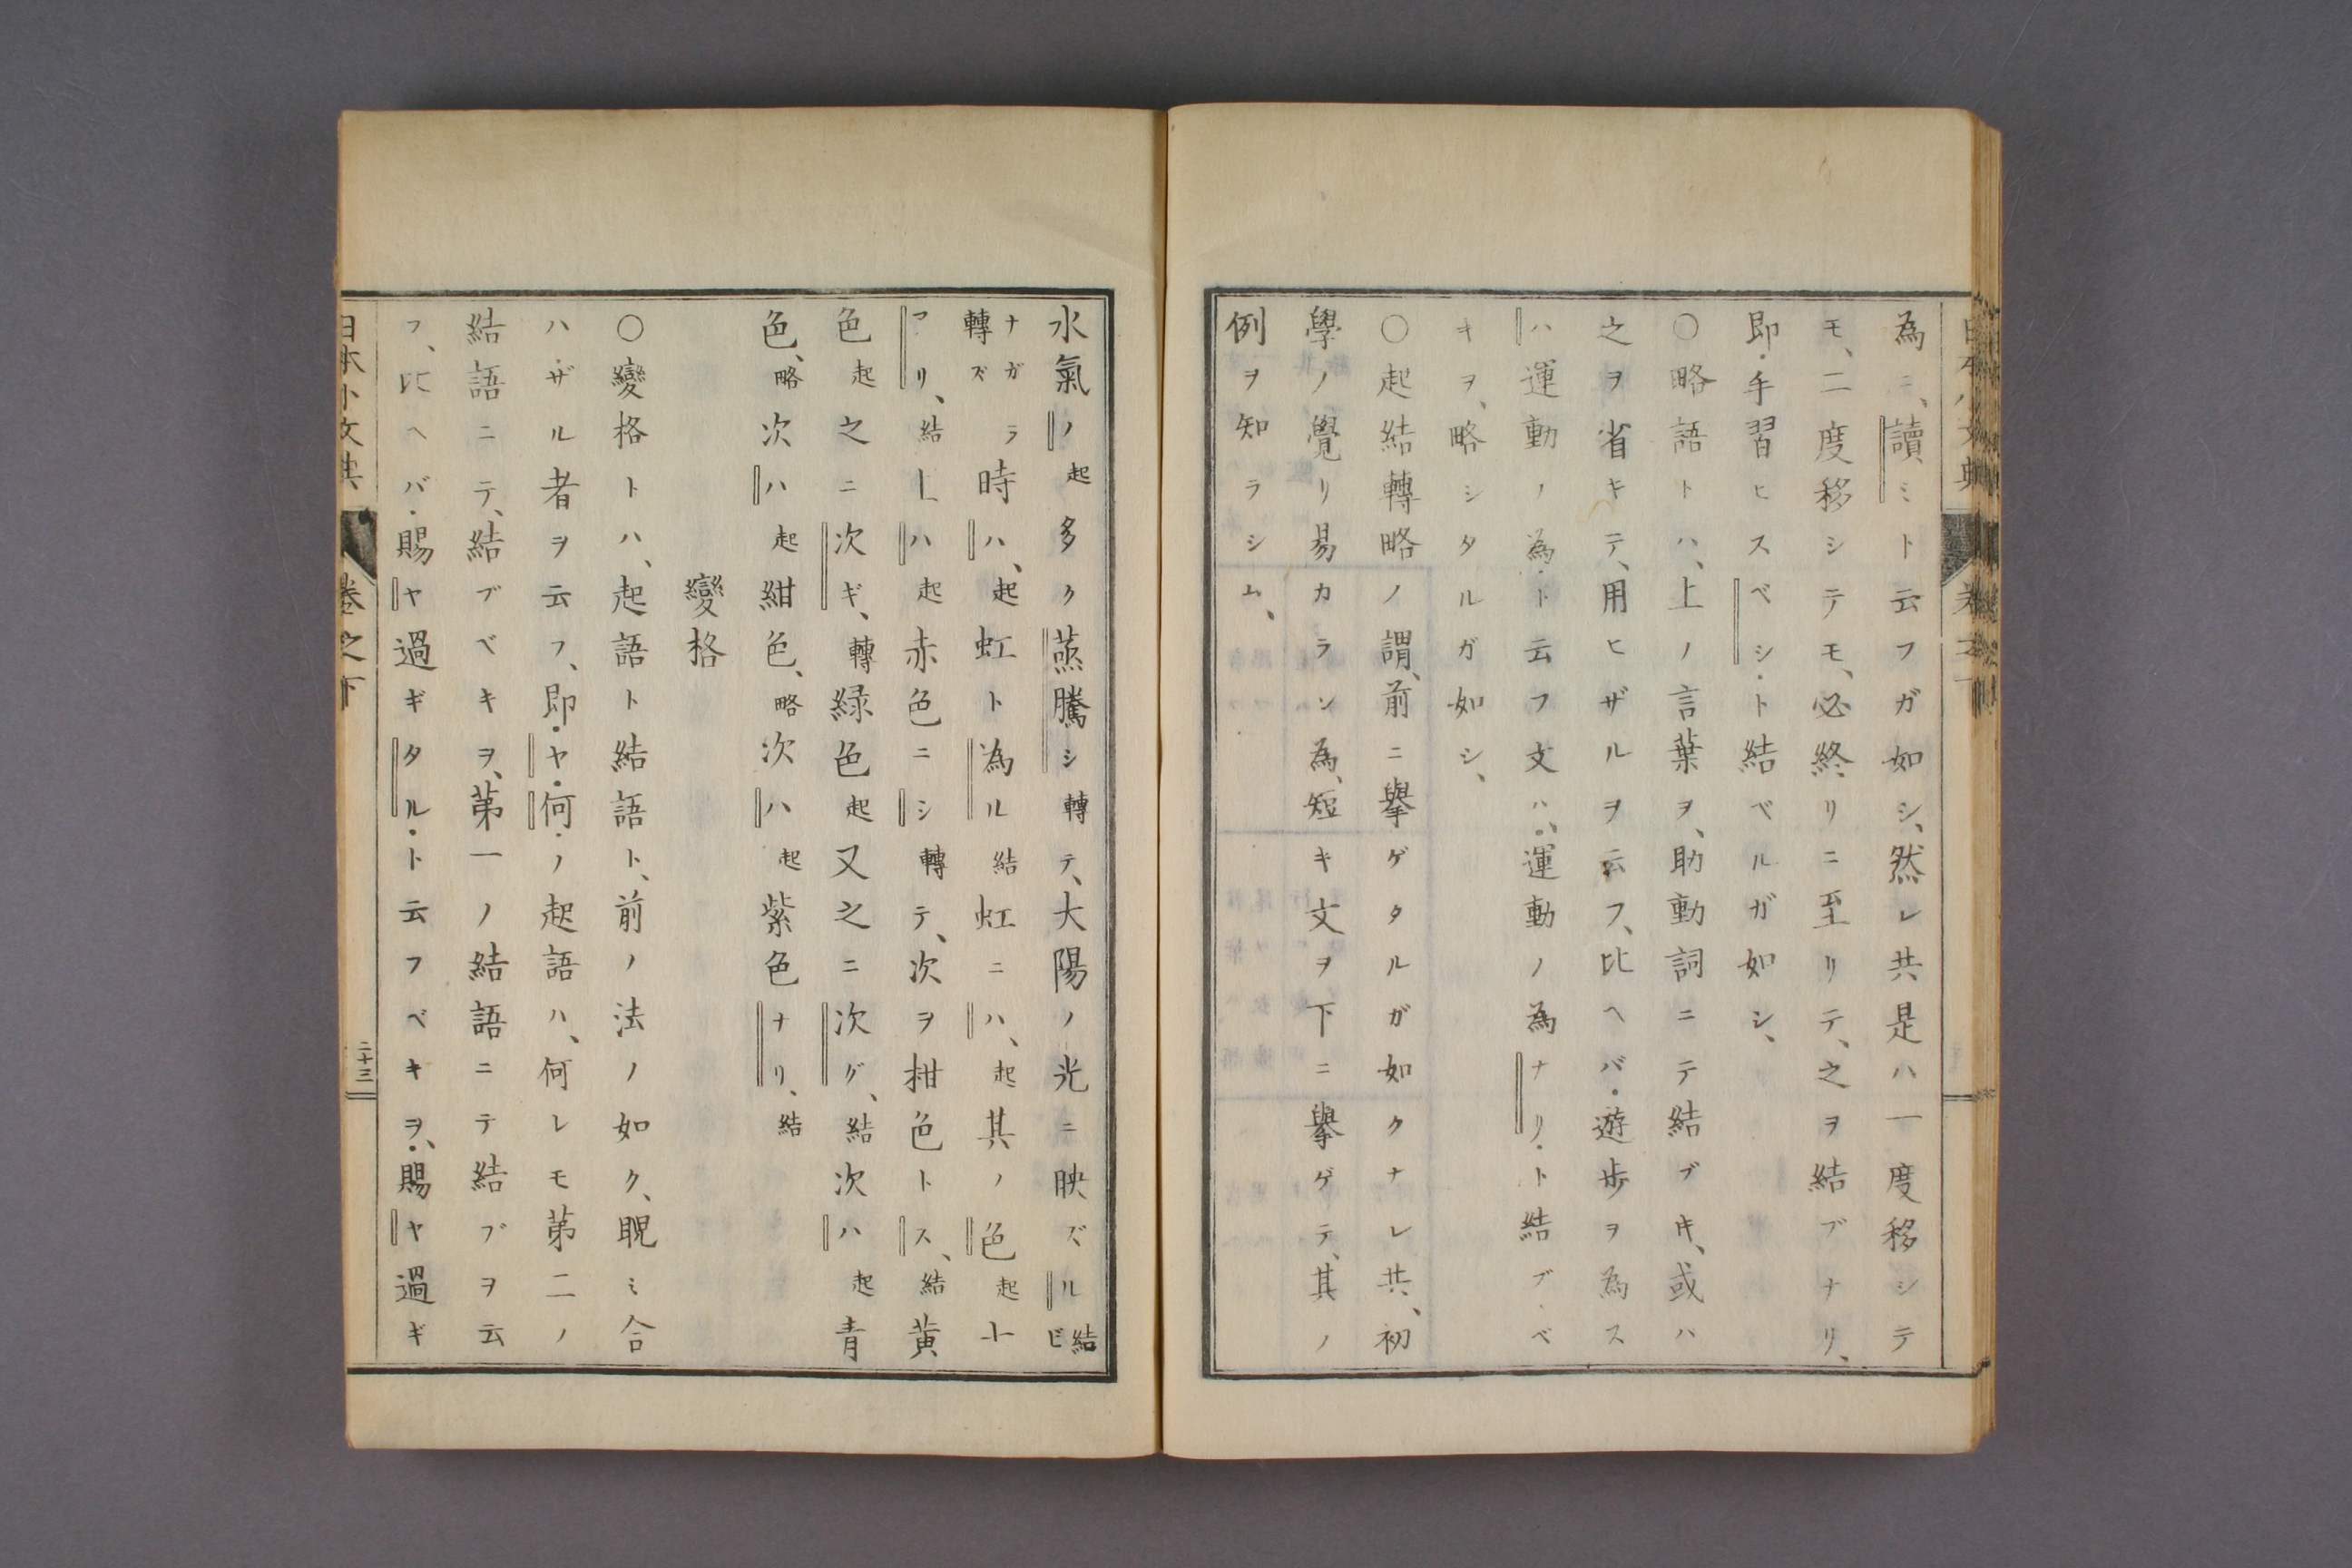 為ニ、讀ミト云フガ如シ、然レ共是ハ一度移シテ
モ、二度移シテモ、必終リニ至リテ、之ヲ結ブナリ、
即・手習ヒスベシ・ト結ベルガ如シ、
○略語トハ、上ノ言葉ヲ、助動詞ニテ結ブキ、或ハ
之ヲ省キテ、用ヒザルヲ云フ、比ヘバ・遊歩ヲ為ス
ハ運動ノ為・ト云フ文ハ、・運動ノ為ナリ・ト結ブベ
キヲ、略シタルガ如シ、
○起結轉略ノ謂、前ニ擧ゲタルガ如クナレ共、初
學ノ覺リ易カラン為、短キ文ヲ下ニ擧ゲテ、其ノ
例ヲ知ラシム、
水氣ノ起多ク蒸騰シ轉テ、大陽ノ光ニ映ズル結ビ
ナガラ轉ズ時ハ、起虹ト為ル結虹ニハ、起其ノ色起十
アリ、結上ハ起赤色ニシ轉テ、次ヲ柑色トス、結黄
色起之ニ次ギ、轉緑色起又之ニ次グ、結次ハ起青
色、略次ハ起紺色、略次ハ起紫色ナリ、結
變格
○變格トハ、起語ト結語ト、前ノ法ノ如ク、睨ミ合
ハザル者ヲ云フ、即・ヤ・何・ノ起語ハ、何レモ第二ノ
結語ニテ、結ブベキヲ、第一ノ結語ニテ結ブヲ云
フ、比ヘバ・賜ヤ過ギタル・ト云フベキヲ、・賜ヤ過ギ
日本小文典 巻之下 二十三